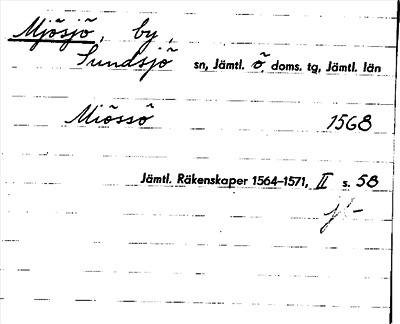 Mjösjö, by,
Sundsjö sn, Jämtl. ö. doms. tg, Jämtl. län
Miössö 1568
Jämtl. Räkenskaper 1564–1571, II s. 58